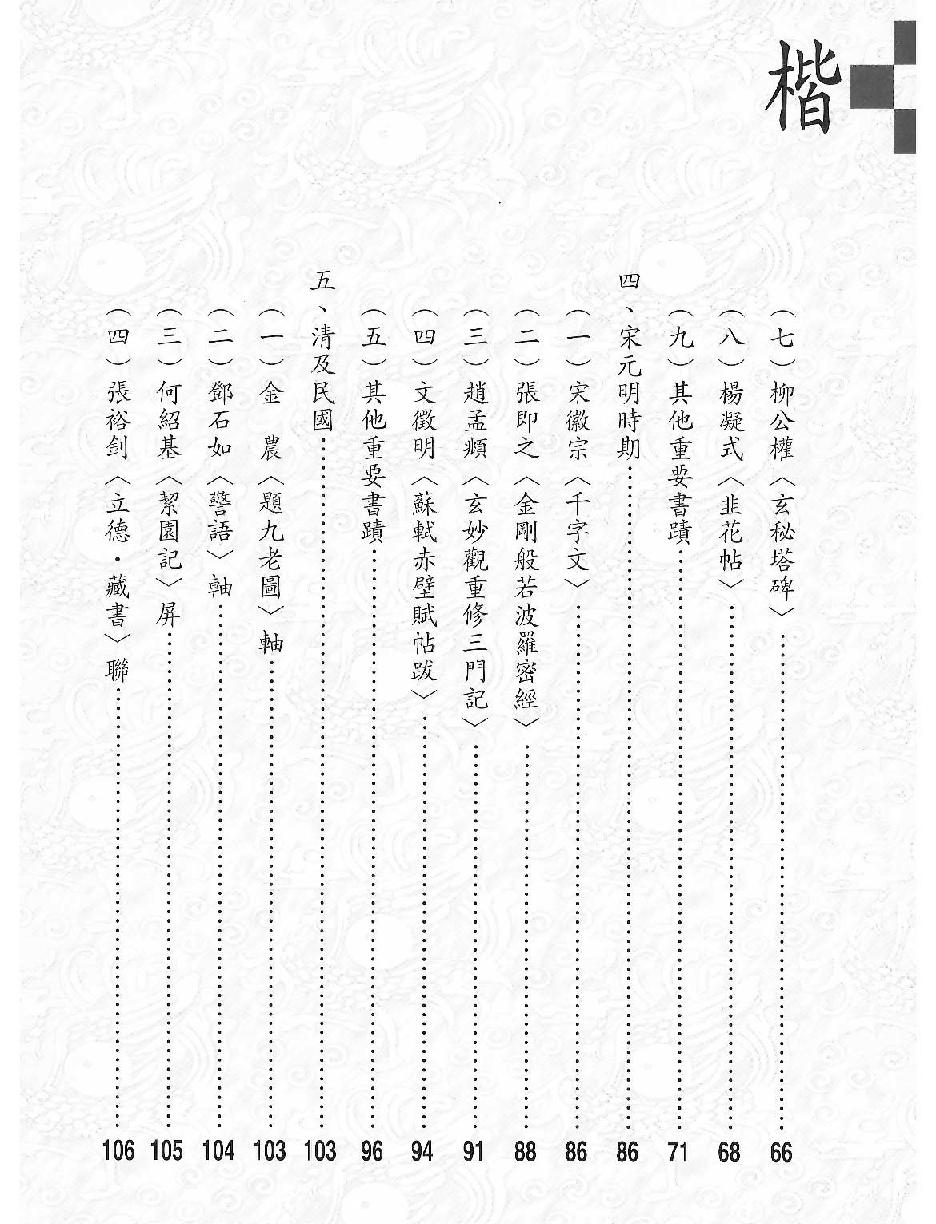 楷
（七）柳公權〈玄秘塔碑〉……66
（八）楊凝式〈韭花帖〉……68
（九）其他重要書蹟……71
四、宋元明時期……86
（一）宋徽宗〈千字文〉……86
（二）張即之〈金剛般若波羅密經〉……88
（三）趙孟頫〈玄妙觀重修三門記〉……91
（四）文徵明〈蘇軾赤壁賦帖跋〉……94
（五）其他重要書蹟……96
五、清及民國……103
（一）金　農〈題九老圖〉軸……103
（二）鄧石如〈警語〉軸……104
（三）何紹基〈絜園記〉屏……105
（四）張裕釗〈立德・藏書〉聯……106